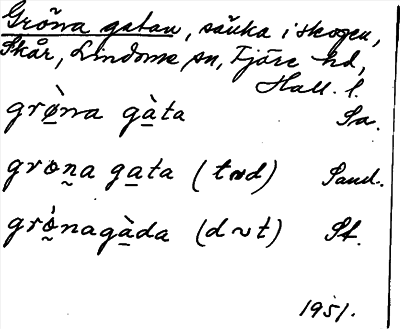 Gröna gatan, sänka i skogen,
Skår, Lindome sn, Fjäre hd,
Hall. l.
grø̀na gàta Sa.
grona gata (t~d) Sand.
grònagàda (d~t) St.
1951.